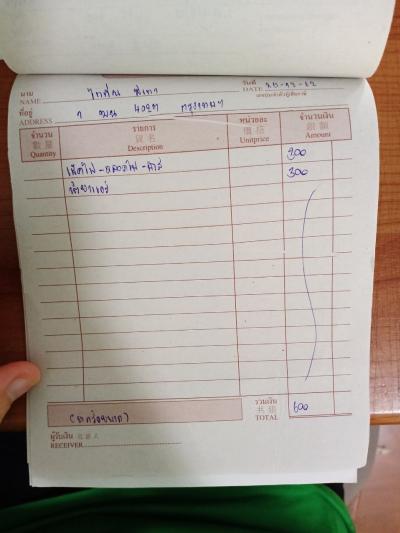 นาม
NAME
วันที่
DATE 20-12-62
เลขประจำตัวผู้เสียภาษี
ที่อยู่
ADDRESS 1 กรุงเทพฯ
จำนวน รายการ หน่วยละ จำนวนเงิน
數量 貨名 價格 銀額
Quantity Description Unitprice Amount
300
น้ำยาแอร์ 300
รวมเงิน
共銀
TOTAL 600
(หกร้อยบาท)
ผู้รับเงิน 收銀人
RECEIVER